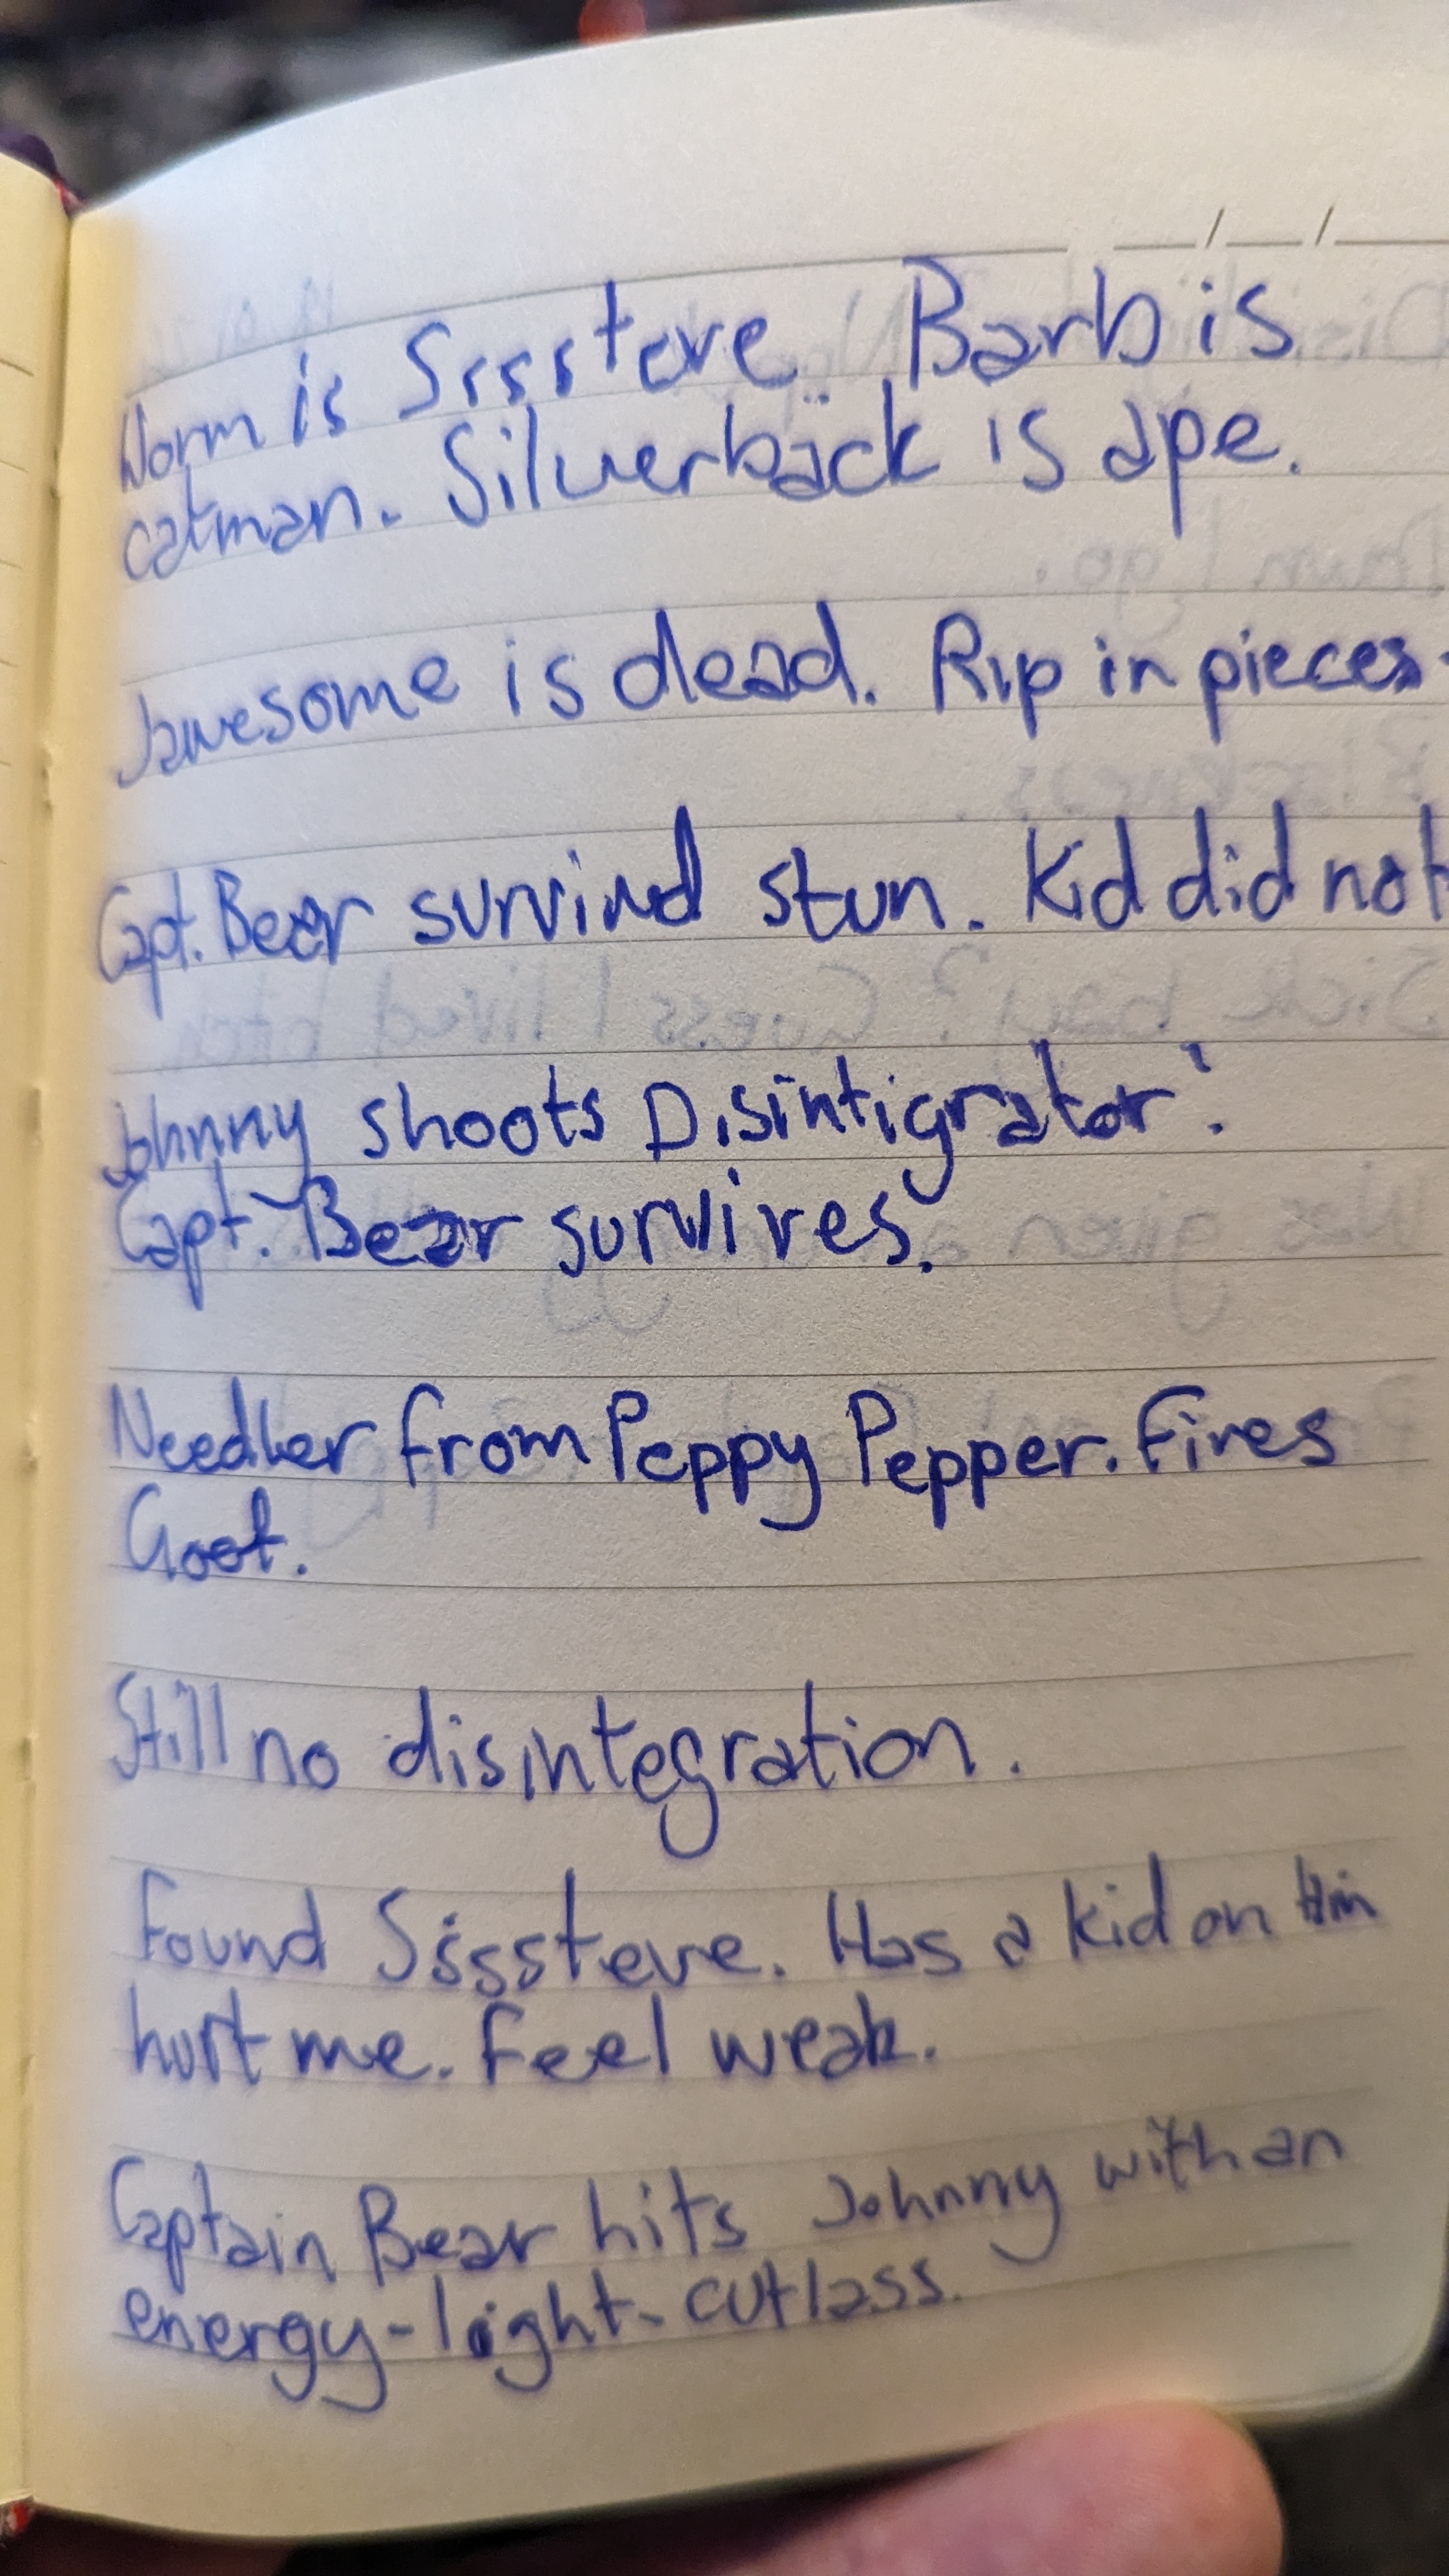 Worm is Sssssteve. Barb is
catman. Silverback is ape.
Jawesome is dead. Rip in pieces.
Capt. Bear survived stun. Kid did not
Johnny shoots Disintigrator!
Capt. Bear survives.
Needler from Peppy Pepper. Fires
Goot.
Still no disintegration.
Found Sssssteve. Has a kid on him
hurt me. Feel weak.
Captain Bear hits Johnny with an
energy-light-cutlass.